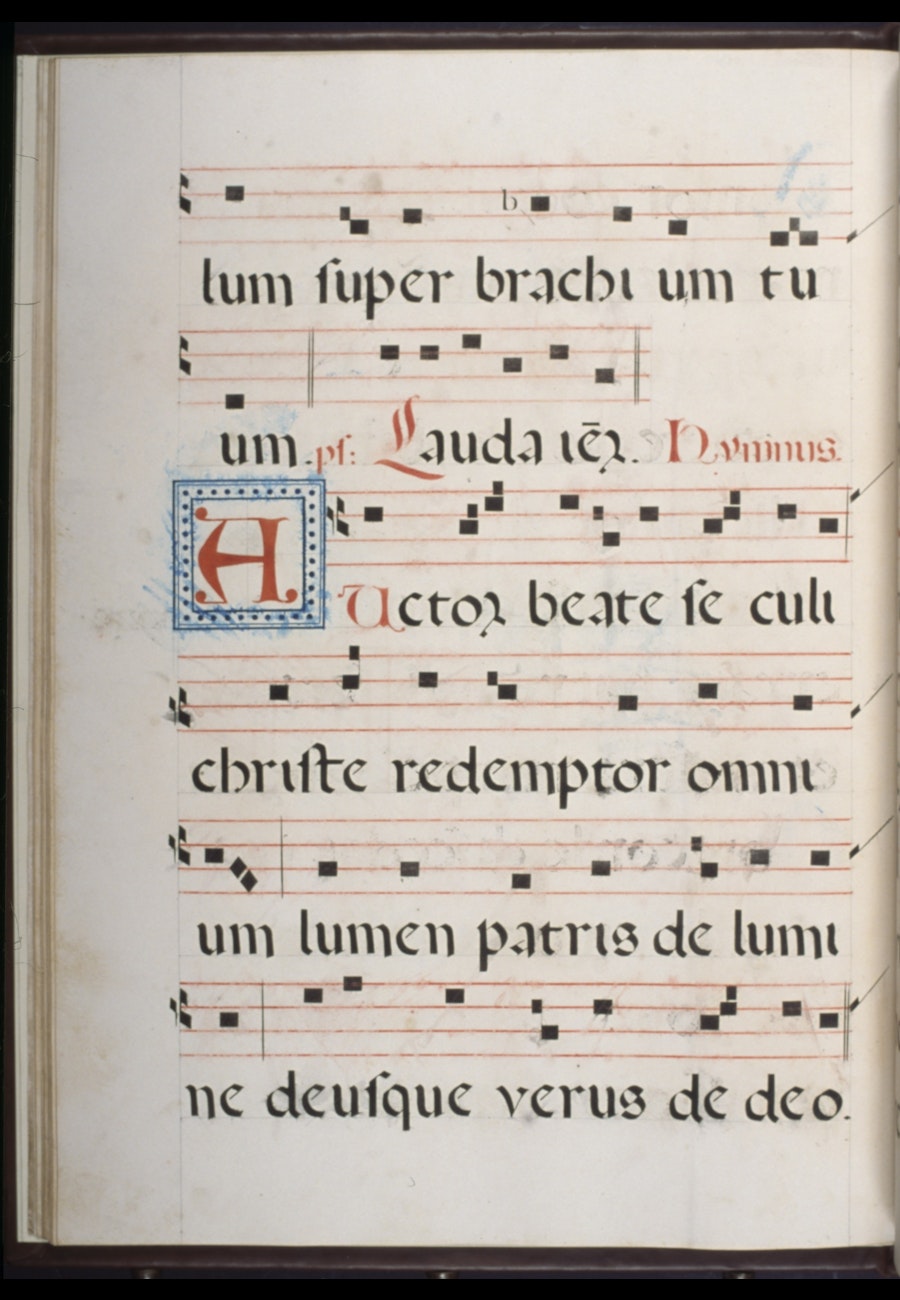 lum ſuper brachi um tu
um. pſ: Lauda iēꝛ. Hymnus.
A Uctoꝛ beate ſe culi
chriſte redemptor omni
um lumen patris de lumi
ne deuſque verus de deo.